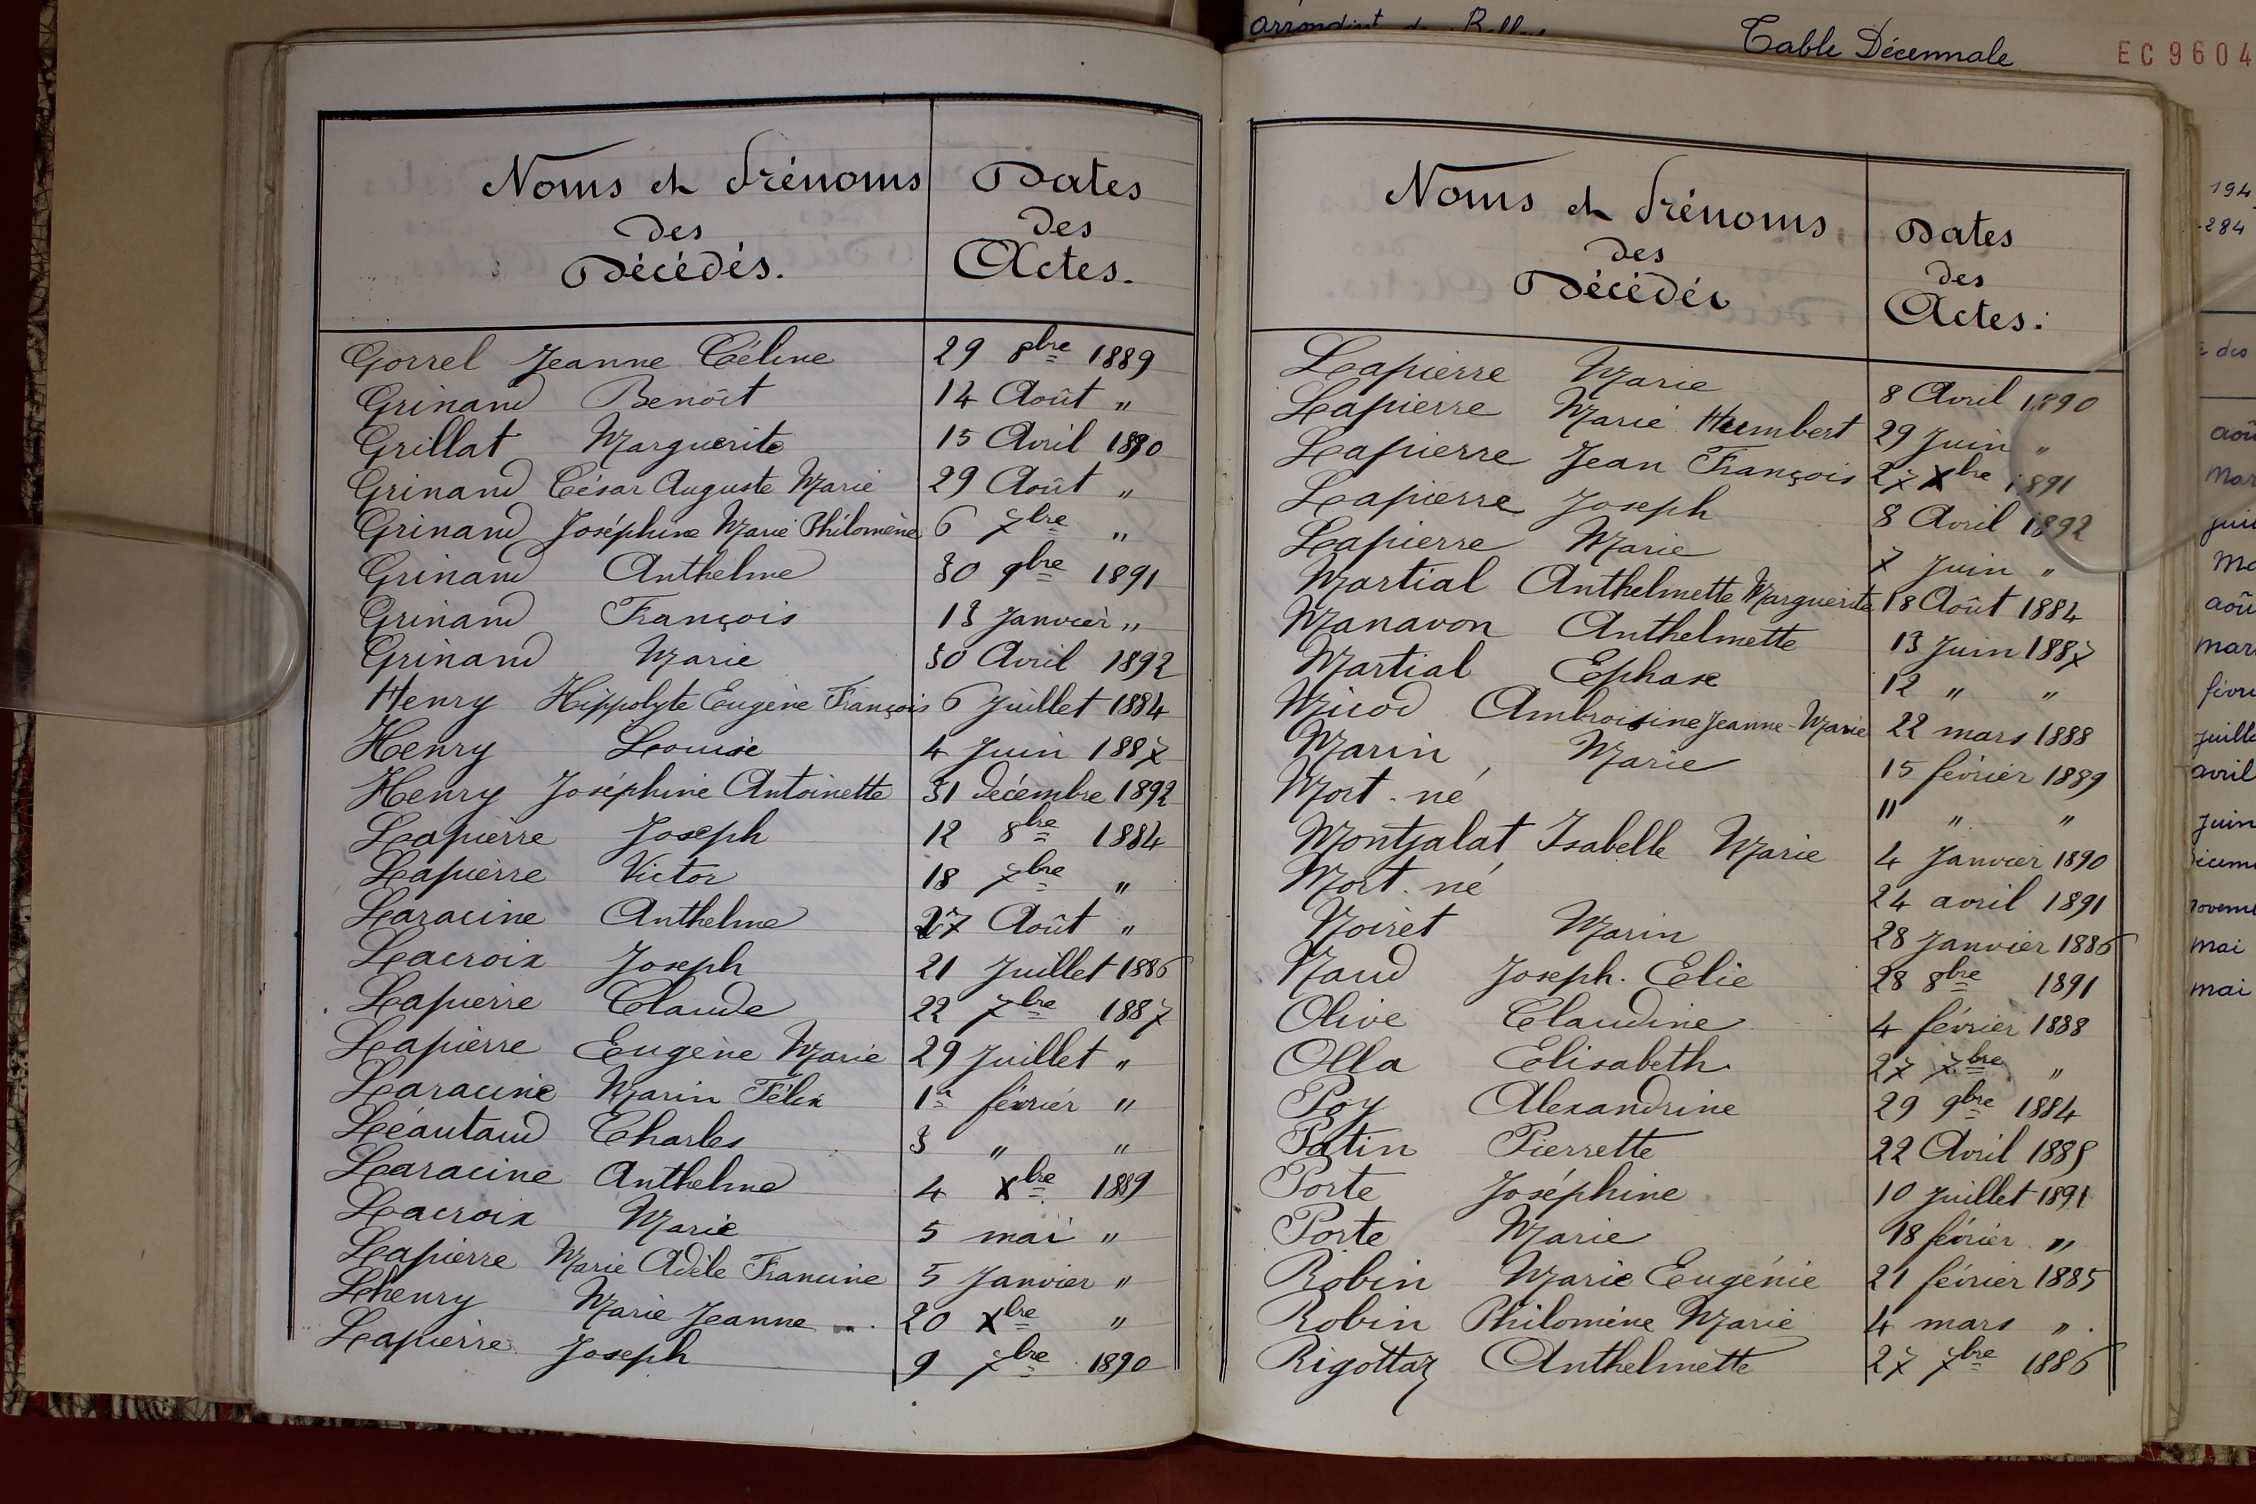 Noms et Prénoms Dates
des des
Décédés. Actes.
Gorrel Jeanne Céline 29 8bre 1889
Grinand Benoît 14 Août "
Grillat Marguerite 15 Avril 1890
Grinand César Auguste Marie 29 Août "
Grinand Joséphine Marie Philomène 6 7bre "
Grinand Anthelme 30 9bre 1891
Grinand François 13 Janvier "
Grinand Marie 30 Avril 1892
Henry Hippolyte Eugène François 6 Juillet 1884
Henry Louise 4 Juin 1887
Henry Joséphine Antoinette 31 Décembre 1892
Lapierre Joseph 12 8bre 1884
Lapierre Victor 18 7bre "
Laracine Anthelme 27 Août "
Lacroix Joseph 21 Juillet 1886
Lapierre Claude 22 7bre 1887
Lapierre Eugène Marie 29 Juillet "
Laracine Marin Félix 1er février "
Léautaud Charles 3 " "
Laracine Anthelme 4 Xbre 1889
Lacroix Marie 5 mai "
Lapierre Marie Adèle Francine 5 Janvier "
Lhenry Marie Jeanne 20 Xbre "
Lapierre Joseph 9 7bre 1890
Table Décennale
EC9604
Noms et Prénoms Dates
des des
Décédés Actes.
Lapierre Marie 8 Avril 1890
Lapierre Marie Humbert 29 Juin "
Lapierre Jean François 27 Xbre 1891
Lapierre Joseph 8 Avril 1892
Lapierre Marie 7 Juin "
Martial Anthelmette Marguerite 18 Août 1884
Manavon Anthelmette 13 Juin 1887
Martial Ephase 12 " "
Micod Ambroisine Jeanne-Marie 22 mars 1888
Marin Marie 15 février 1889
Mort-né " " "
Montjalat Isabelle Marie 4 Janvier 1890
Mort-né 24 avril 1891
Noiret Marin 28 Janvier 1886
Naud Joseph. Elie 28 8bre 1891
Olive Claudine 4 février 1888
Olla Elisabeth 27 7bre "
Poy Alexandrine 29 9bre 1884
Patin Pierrette 22 Avril 1885
Porte Joséphine 10 Juillet 1891
Porte Marie 18 février "
Robin Marie Eugénie 21 février 1885
Robin Philomène Marie 4 mars "
Rigottaz Anthelmette 27 7bre 1886
194
284
des
Juin
mai
mai